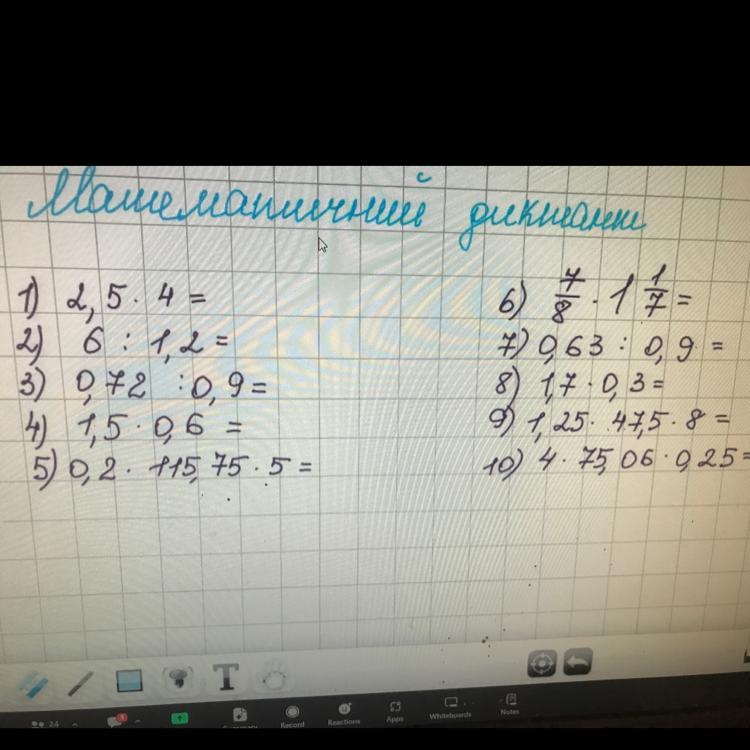 Математичний диктант
1) 2,5 · 4 =
2) 6 : 1,2 =
3) 0,72 : 0,9 =
4) 1,5 · 0,6 =
5) 0,2 · 115,75 · 5 =
6) 7/8 · 1 1/7 =
7) 0,63 : 0,9 =
8) 1,7 · 0,3 =
9) 1,25 · 47,5 · 8 =
10) 4 · 75,06 · 0,25 =
T
24 1 Record Reactions Apps Whiteboards Notes